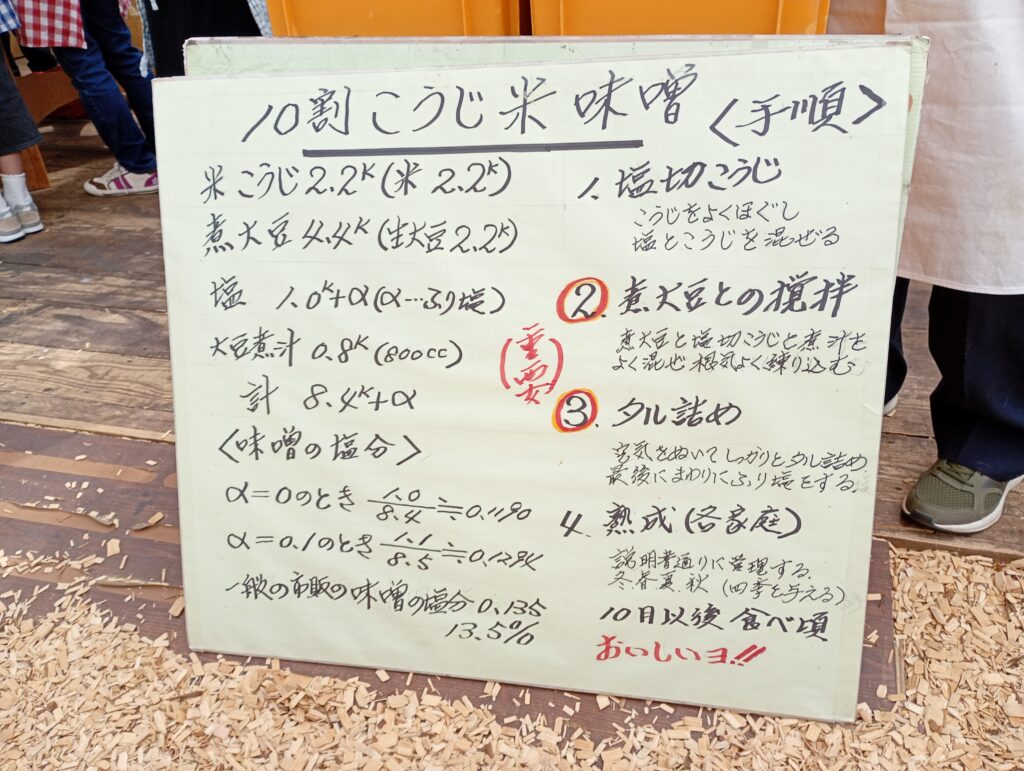 10割こうじ米味噌 〈手順〉
米こうじ2.2K(米 2.2K)
煮大豆4.4K(生大豆2.2K)
塩 1.0K+α(α…ふり塩)
大豆煮汁 0.8K(800cc)
計 8.4K+α
〈味噌の塩分〉
α=0のとき 1.0/8.4≒0.1190
α=0.1のとき 1.1/8.5≒0.1294
一般の市販の味噌の塩分0.135
13.5%
1. 塩切こうじ
こうじをよくほぐし
塩とこうじを混ぜる
(重要)
2. 煮大豆との撹拌
煮大豆と塩切こうじと煮汁を
よく混ぜ根気よく練り込む
3. タル詰め
空気をぬいてしっかりとタル詰め
最後にまわりにふり塩をする.
4. 熟成(各家庭)
説明書通りに管理する.
冬.春.夏.秋 (四季を与える)
10月以後 食べ頃
おいしいヨ!!